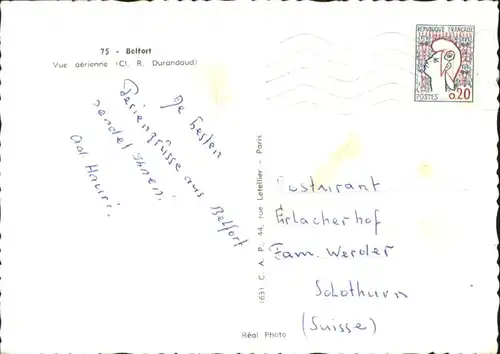 75 - Belfort
Vue aérienne (Cl. R. Durandaud)
REPUBLIQUE FRANÇAISE
POSTES 0,20
besten
Feriengrüsse aus Belfort
sendet Ihnen
Ad. Hauri.
1631 C. A. P., 44, rue Letellier - Paris
Restaurant
Erlacherhof
Fam. Werder
Solothurn
(Suisse)
Réal Photo